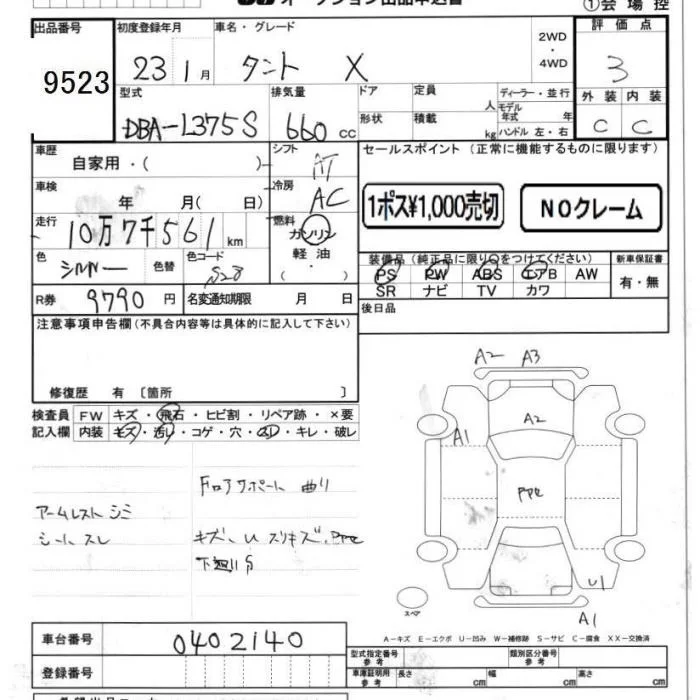 オークション出品申込書 ①会場控
出品番号 9523
初度登録年月 23 1月
車名・グレード タント X
2WD・4WD
評価点 3
型式 DBA-L375S
排気量 660 cc
ドア 形状
定員 人 積載 kg
ディーラー・並行
モデル年式 年
ハンドル 左・右
外装 内装
C C
車歴 自家用・( )
シフト AT
セールスポイント(正常に機能するものに限ります)
車検 年 月( 日)
冷房 AC
1ポス¥1,000売切 NOクレーム
走行 10万7千561km
燃料 ガソリン・軽油・( )
色 シルバー 色替 色コード S28
装備品(純正品に限り○をつけてください) 新車保証書
PS PW ABS エアB AW 有・無
SR ナビ TV カワ
R券 9790円 名変通知期限 月 日
後日品
注意事項申告欄(不具合内容等は具体的に記入して下さい)
修復歴 有 〔箇所 〕
検査員 FW キズ・飛石・ヒビ割・リペア跡・×要
記入欄 内装 キズ・汚レ・コゲ・穴・スレ・キレ・破レ
Fロアサポート 曲り
アームレスト シミ
シート スレ
キズ、U スリキズ、PPペ
下廻りS
A2 A3
A2
A1
PPペ
U1
スペア A1
A-キズ E-エクボ U-凹み W-補修跡 S-サビ C-腐食 XX-交換済
車台番号 0402140
登録番号
型式指定番号 参考 類別区分番号 参考
車庫証明用 参考 長さ cm 幅 cm 高さ cm